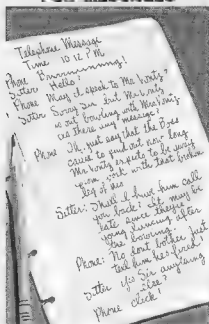 Telephone Message
Time 10:12 P.M.
Phone Brrrrrinnnng!
Sitter Hello!
Phone May I speak to Mr.
Sitter Sorry Sir, but Mr.
out bowling with Mrs.
Is there any message?
Phone just say that the Boss
called to find out how long
Mr. expects to be away
from work with that broken
leg of his
Sitter: Shall I have him call
you back? It may be
late since they're
going dancing after
the bowling.
Phone: No don't bother just
tell him he's fired!
Sitter Yes Sir anything
else?
Phone click!